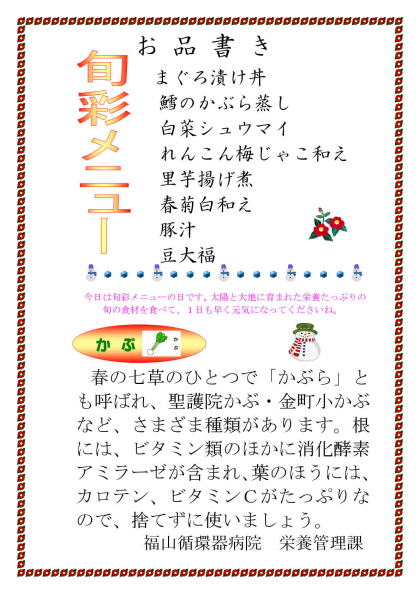 お品書き
旬彩メニュー
まぐろ漬け丼
鱈のかぶら蒸し
白菜シュウマイ
れんこん梅じゃこ和え
里芋揚げ煮
春菊白和え
豚汁
豆大福
今日は旬彩メニューの日です。太陽と大地に育まれた栄養たっぷりの
旬の食材を食べて、１日も早く元気になってくださいね。
かぶ
かぶ
春の七草のひとつで「かぶら」と
も呼ばれ、聖護院かぶ・金町小かぶ
など、さまざま種類があります。根
には、ビタミン類のほかに消化酵素
アミラーゼが含まれ、葉のほうには、
カロテン、ビタミンＣがたっぷりな
ので、捨てずに使いましょう。
福山循環器病院　栄養管理課